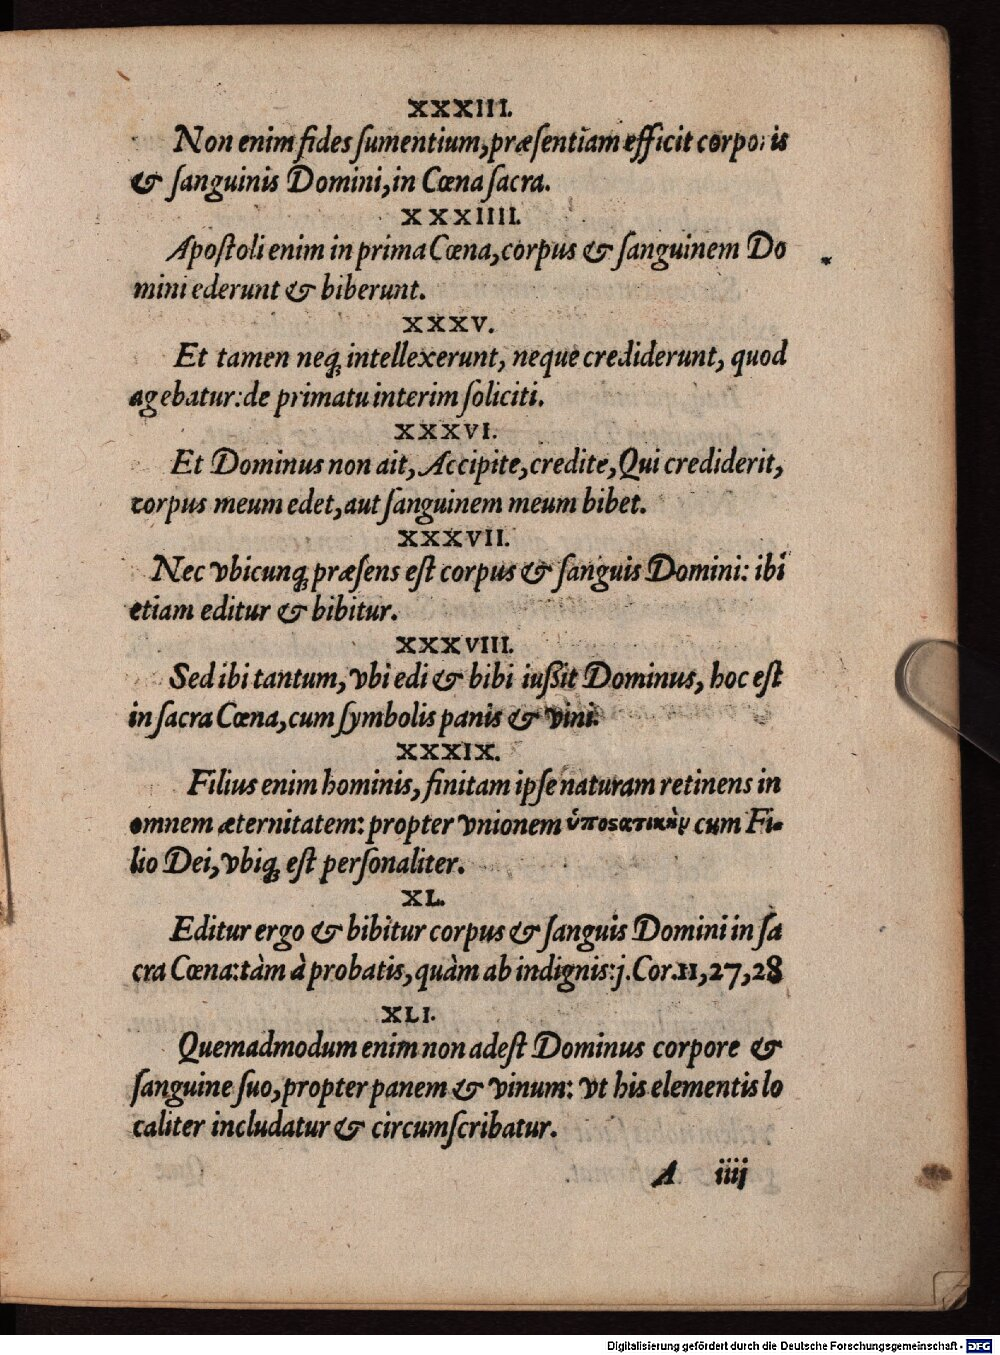 XXXIII.
Non enim fides ſumentium, præſentiam efficit corporis
& ſanguinis Domini, in Cœna ſacra.
XXXIIII.
Apoſtoli enim in prima Cœna, corpus & ſanguinem Do
mini ederunt & biberunt.
XXXV.
Et tamen neq; intellexerunt, neque crediderunt, quod
agebatur: de primatu interim ſoliciti.
XXXVI.
Et Dominus non ait, Accipite, credite, Qui crediderit,
corpus meum edet, aut ſanguinem meum bibet.
XXXVII.
Nec vbicunq; præſens eſt corpus & ſanguis Domini: ibi
etiam editur & bibitur.
XXXVIII.
Sed ibi tantum, vbi edi & bibi iuſſit Dominus, hoc eſt
in ſacra Cœna, cum ſymbolis panis & vini.
XXXIX.
Filius enim hominis, finitam ipſe naturam retinens in
omnem æternitatem: propter vnionem ὑποϛατικὴν cum Fi-
lio Dei, vbiq; eſt perſonaliter.
XL.
Editur ergo & bibitur corpus & ſanguis Domini in ſa
cra Cœna: tàm à probatis, quàm ab indignis: j. Cor. 11, 27, 28
XLI.
Quemadmodum enim non adeſt Dominus corpore &
ſanguine ſuo, propter panem & vinum: vt his elementis lo
caliter includatur & circumſcribatur.
A iiij
Digitalisierung gefördert durch die Deutsche Forschungsgemeinschaft - DFG